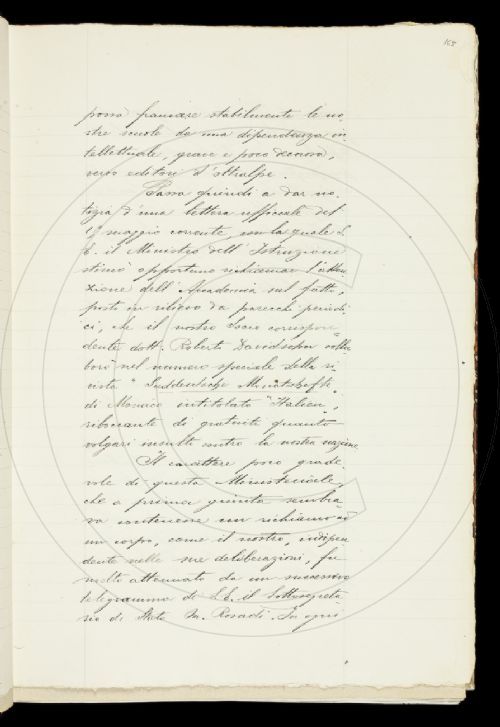 165
possa francare stabilmente le no-
stre scuole da una dipendenza in-
tellettuale, grave e poco decorosa,
verso editori d'oltralpe.
Passa quindi a dar no-
tizia d'una lettera ufficiale del
19 maggio corrente, con la quale S.
E. il Ministro dell'Istruzione
stimò opportuno richiamar l'atten-
zione dell'Accademia sul fatto,
posto in rilievo da parecchi periodi-
ci, che il nostro Socio corrispon-
dente dott. Roberto Davidsohn colla-
borò nel numero speciale della ri-
vista "Süddeutsche Monatshefte"
di Monaco intitolato "Italien",
riboccante di gratuiti quanto
volgari insulti contro la nostra nazione.
Il carattere poco grade-
vole di questa Ministeriale,
che a prima giunta sembra-
va contenere un richiamo ad
un corpo, come il nostro, indipen-
dente nelle sue deliberazioni, fu
molto attenuato da un successivo
telegramma di S. E. il Sottosegreta-
rio di Stato On. Rosadi. In ogni